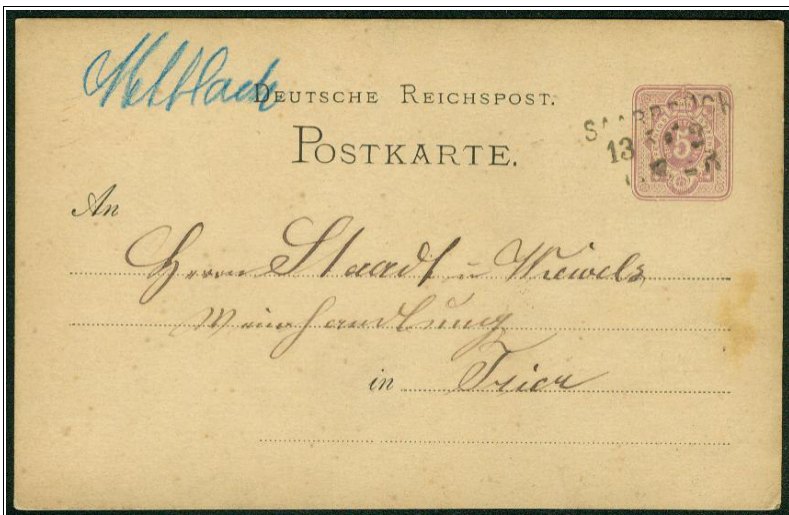 Mettlach
DEUTSCHE REICHSPOST.
POSTKARTE.
SAARBRÜCK
13
5
An
Herrn Staadt u
Weinhandlung
in Trier